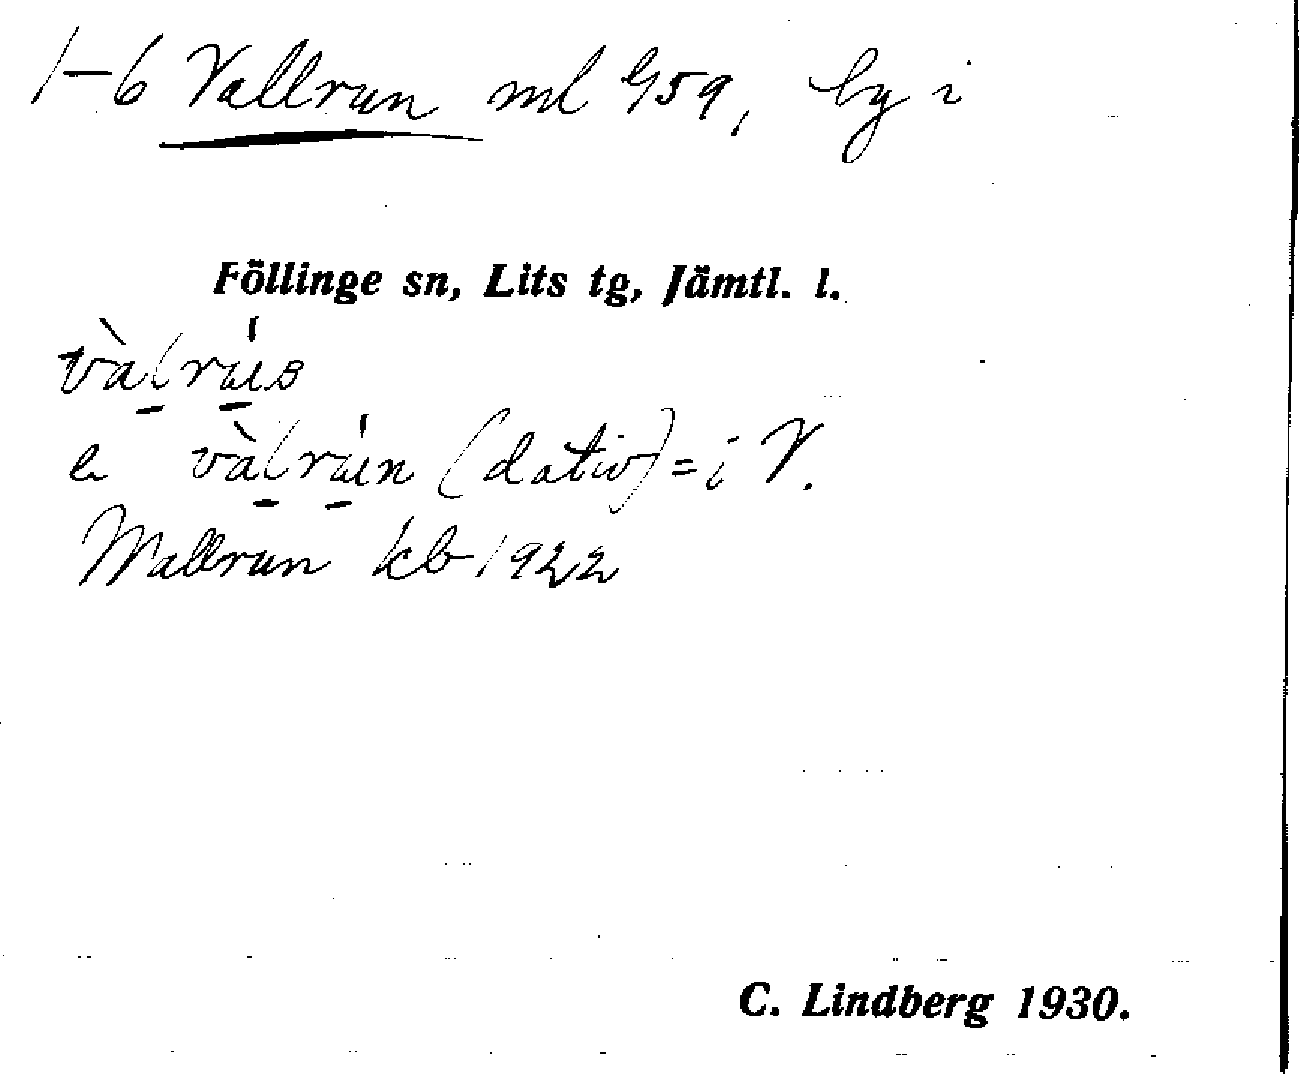 1-6 Vallrun ml 4/59, by i
Föllinge sn, Lits tg, Jämtl. l.
(dativ) = i V.
Wallrun kb 1922
C. Lindberg 1930.